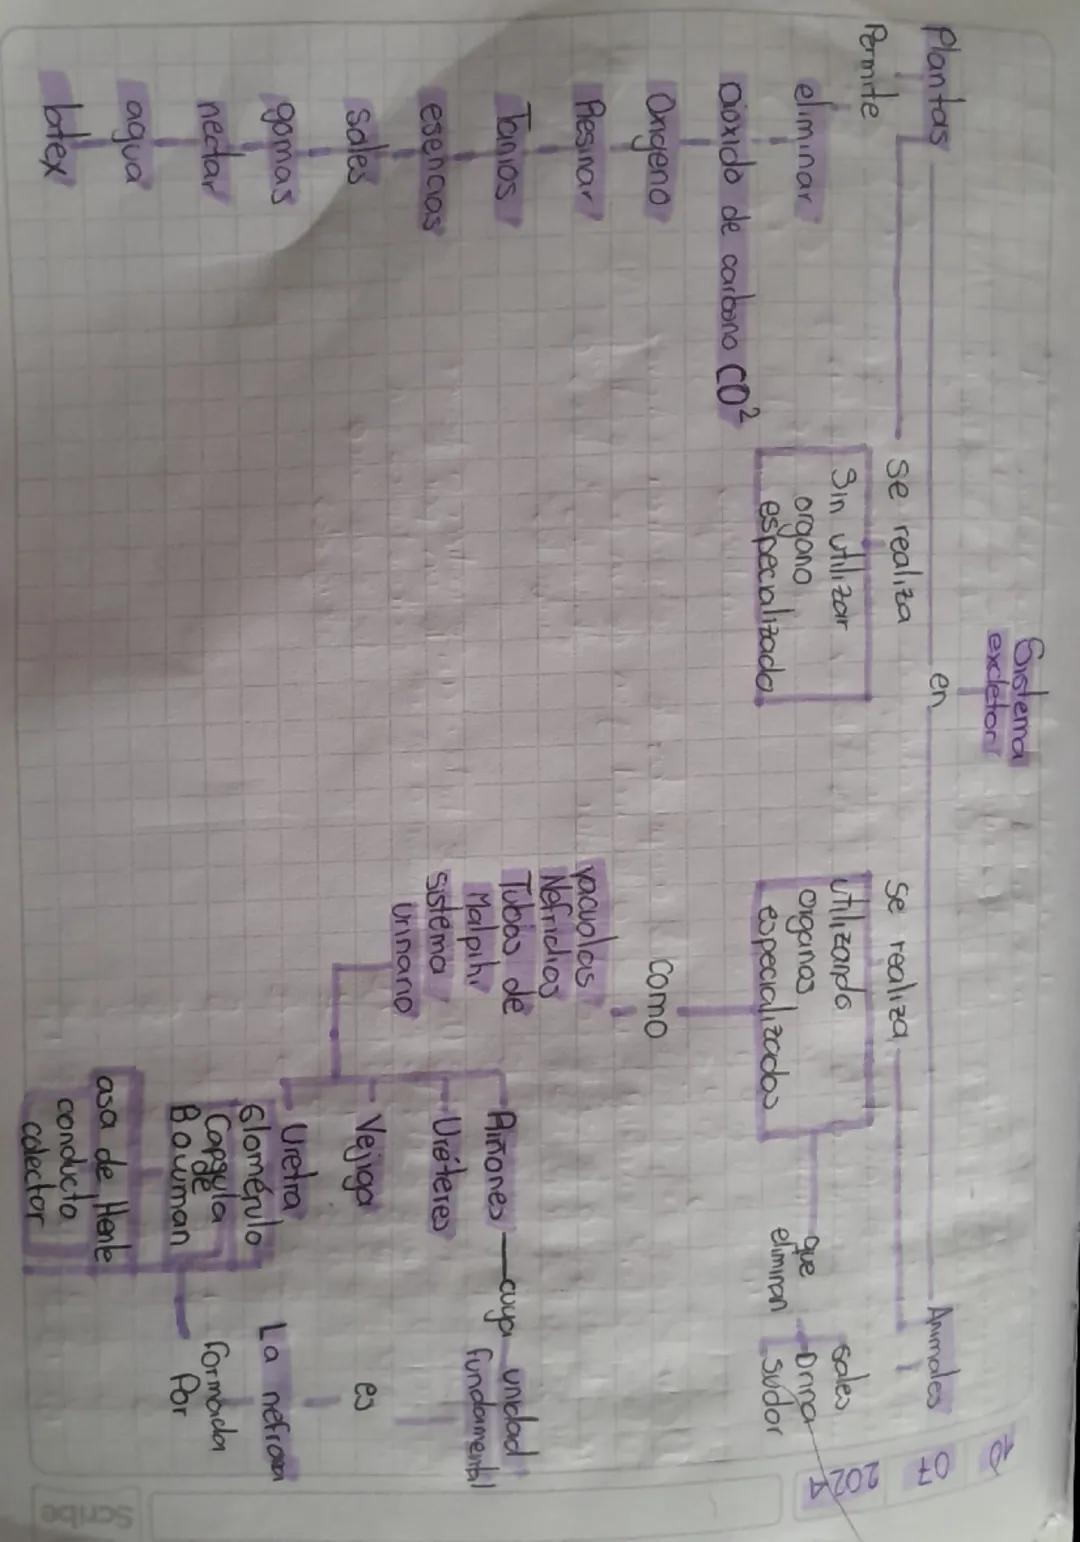 10 07 202
Sistema
excletor
en
Plantas
Animales
Permite
se realiza
se realiza
eliminar
Dioxido de carbono CO²
Oxigeno
Resinar
Tanios
esencias
Sales
gomas
nectar
agua
latex
Sin utilizar
organo
especializado
utilizando
organos
especializados
que
eliminan
sales
Orina
sudor
Como
vacuolas
Nefridios
Tubos de
Malpihi
sistema
urinario
Riñones
Uréteres
Vejiga
Uretra
cuya unidad
fundamental
es
La nefrona
formada
Por
Glomérulo
Capsula
de
Bowman
asa de Henle
conducto
colector
Scribe